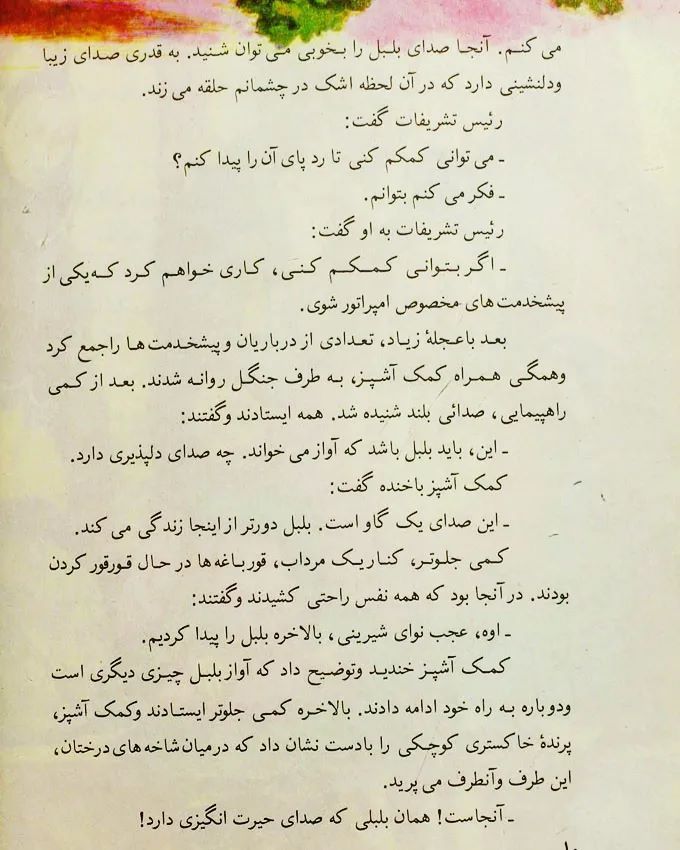 می کنـم. آنجـا صدای بلبـل را بـخوبی مـی توان شـنید. به قدری صـدای زیبـا
ودلنشینی دارد که در آن لحظه اشک در چشمانم حلقه می زند.
رئیس تشریفات گفت:
ـ می توانی کمکم کنی تا رد پای آن را پیدا کنم؟
ـ فکر می کنم بتوانم.
رئیس تشریفات به او گفت:
ـ اگـر بـتـوانی کـمـکـم کـنـی، کـاری خـواهـم کـرد کـه یکی از
پیشخدمت های مخصوص امپراتور شوی.
بعـد باعجلهٔ زیـاد، تعـدادی از دربـاریان وپیشخـدمت هـا راجمع کرد
وهمگـی همـراه کمک آشپـز، بـه طرف جنگـل روانـه شدند. بعـد از کـمی
راهپیمایی، صدائی بلند شنیده شد. همه ایستادند وگفتند:
ـ این، باید بلبل باشد که آواز می خواند. چه صدای دلپذیری دارد.
کمک آشپز باخنده گفت:
ـ این صدای یک گاو است. بلبل دورتر از اینجا زندگی می کند.
کـمی جلـوتـر، کنـاریـک مرداب، قورباغه ها در حال قـورقور کردن
بودند. در آنجا بود که همه نفس راحتی کشیدند وگفتند:
ـ اوه، عجب نوای شیرینی، بالاخره بلبل را پیدا کردیم.
کمـک آشپـز خندیـد وتوضـیح داد که آواز بلبـل چیـزی دیگری است
ودوباره بـه راه خود ادامه دادند. بالاخـره کمـی جلوتر ایستـادند وکمک آشپز،
پرندهٔ خاکستری کوچـکی را بادست نشان داد که درمیان شاخه های درختان،
این طرف وآنطرف می پرید.
ـ آنجاست! همان بلبلی که صدای حیرت انگیزی دارد!
۱۰